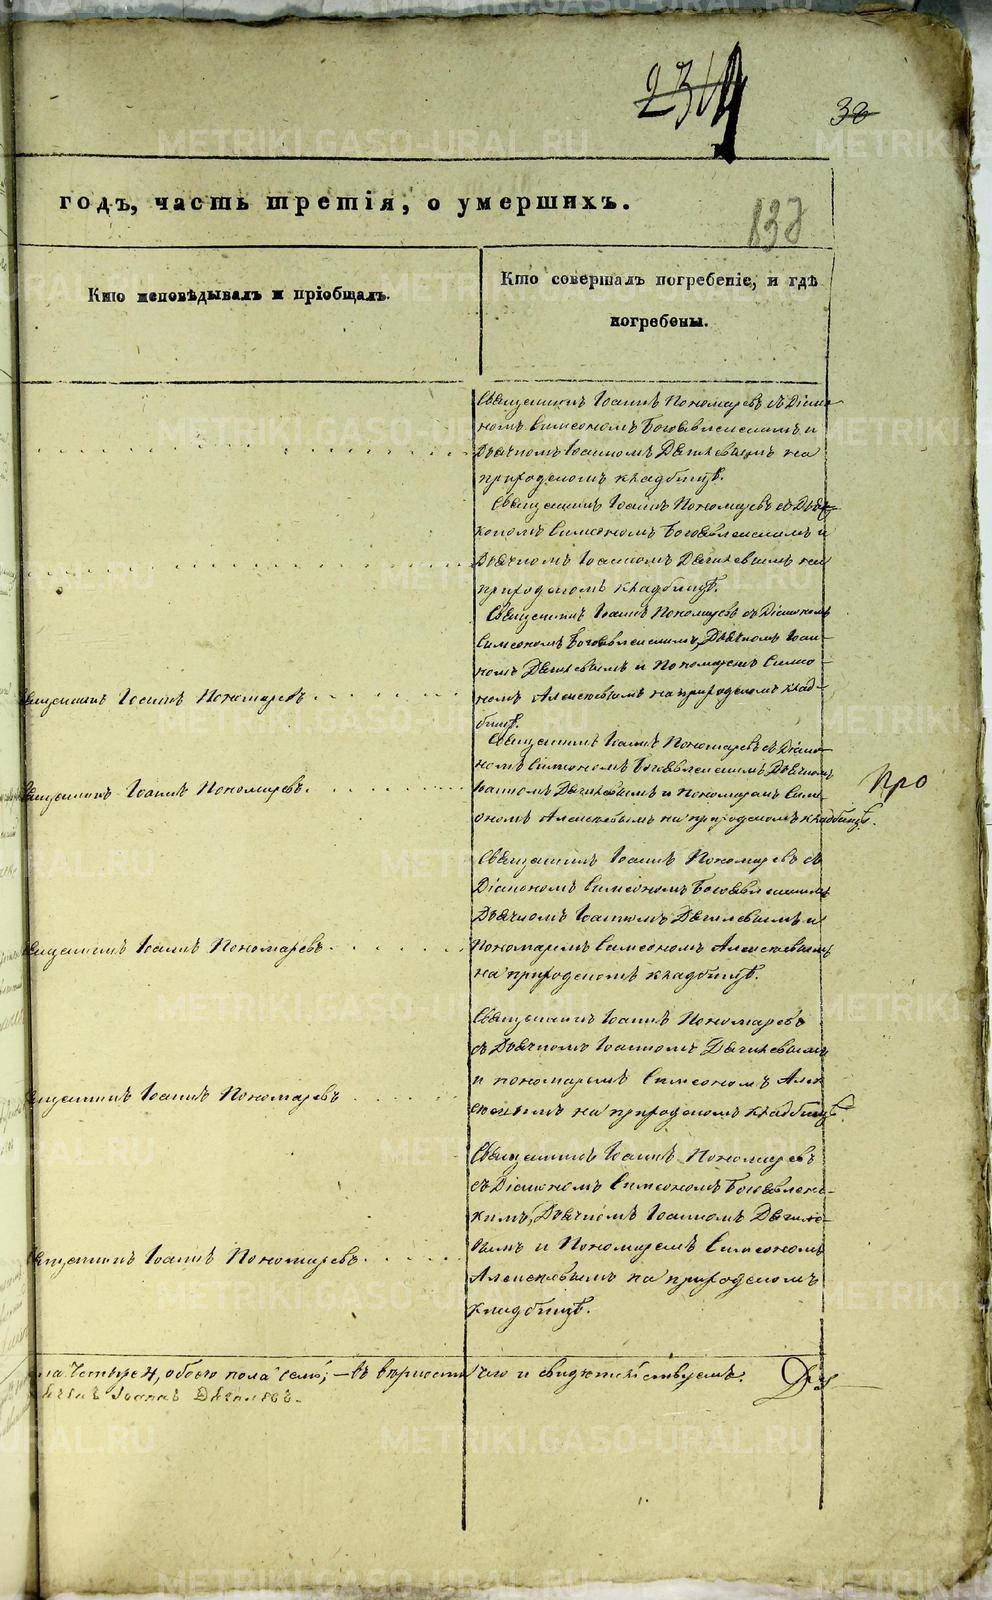 32
годъ, часть третія, о умершихъ.
138
Кто исповѣдывалъ и пріобщалъ.
Кто совершалъ погребеніе, и гдѣ
погребены.
Священникъ Іоаннъ Пономаревъ съ Діако-
номъ Симеономъ Богоявленскимъ и
Дьячкомъ Іоанномъ Дягилевымъ на
приходскомъ кладбищѣ.
Священникъ Іоаннъ Пономаревъ съ Діа-
кономъ Симеономъ Богоявленскимъ и
Дьячкомъ Іоанномъ Дягилевымъ на
приходскомъ кладбищѣ.
Священникъ Іоаннъ Пономаревъ съ Діакономъ
Симеономъ Богоявленскимъ, Дьячкомъ Іоан-
номъ Дягилевымъ и Пономаремъ Симео-
Священникъ Іоаннъ Пономаревъ
номъ Алексѣевымъ на приходскомъ клад-
бищѣ.
Священникъ Іоаннъ Пономаревъ съ Діако-
номъ Симеономъ Богоявленскимъ Дьячкомъ
Про
Священникъ Іоаннъ Пономаревъ.
Іоанномъ Дягилевымъ и Пономаремъ Симе-
ономъ Алексѣевымъ на приходскомъ кладбищѣ.
Священникъ Іоаннъ Пономаревъ съ
Діакономъ Симеономъ Богоявленскимъ
Дьячкомъ Іоанномъ Дягилевымъ и
Священникъ Іоаннъ Пономаревъ
Пономаремъ Симеономъ Алексѣевымъ
на приходскомъ кладбищѣ.
Священникъ Іоаннъ Пономаревъ
съ Дьячкомъ Іоанномъ Дягилевымъ
и пономаремъ Симеономъ Алек
Священникъ Іоаннъ Пономаревъ
сѣевымъ на приходскомъ кладбищѣ.
Священникъ Іоаннъ Пономаревъ
съ Діакономъ Симеономъ Богоявленс-
кимъ, Дьячкомъ Іоанномъ Дягиле-
Священникъ Іоаннъ Пономаревъ.
вымъ и Пономаремъ Симеономъ
Алексѣевымъ на приходскомъ
кладбищѣ.
четыре 4, обоего пола семь; – въ вѣрности чего и свидѣтельствуемъ.
Іоаннъ Дягилевъ.
METRIKI.GASO-URAL.RU